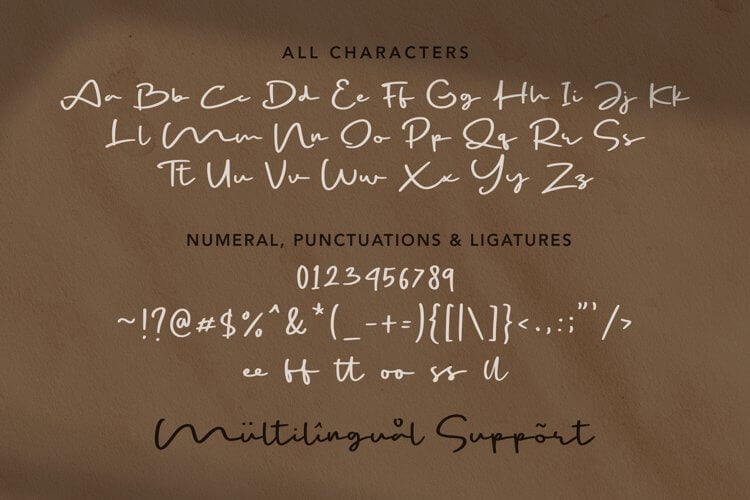 ALL CHARACTERS
Aa Bb Cc Dd Ee Ff Gg Hh Ii Jj Kk
Ll Mm Nn Oo Pp Qq Rr Ss
Tt Uu Vv Ww Xx Yy Zz
NUMERAL, PUNCTUATIONS & LIGATURES
0123456789
~!?@#$%^&*(_-+=){[|\]}<.,:;"'/>
ee ff tt oo ss ll
Mültilînguål Suppõrt